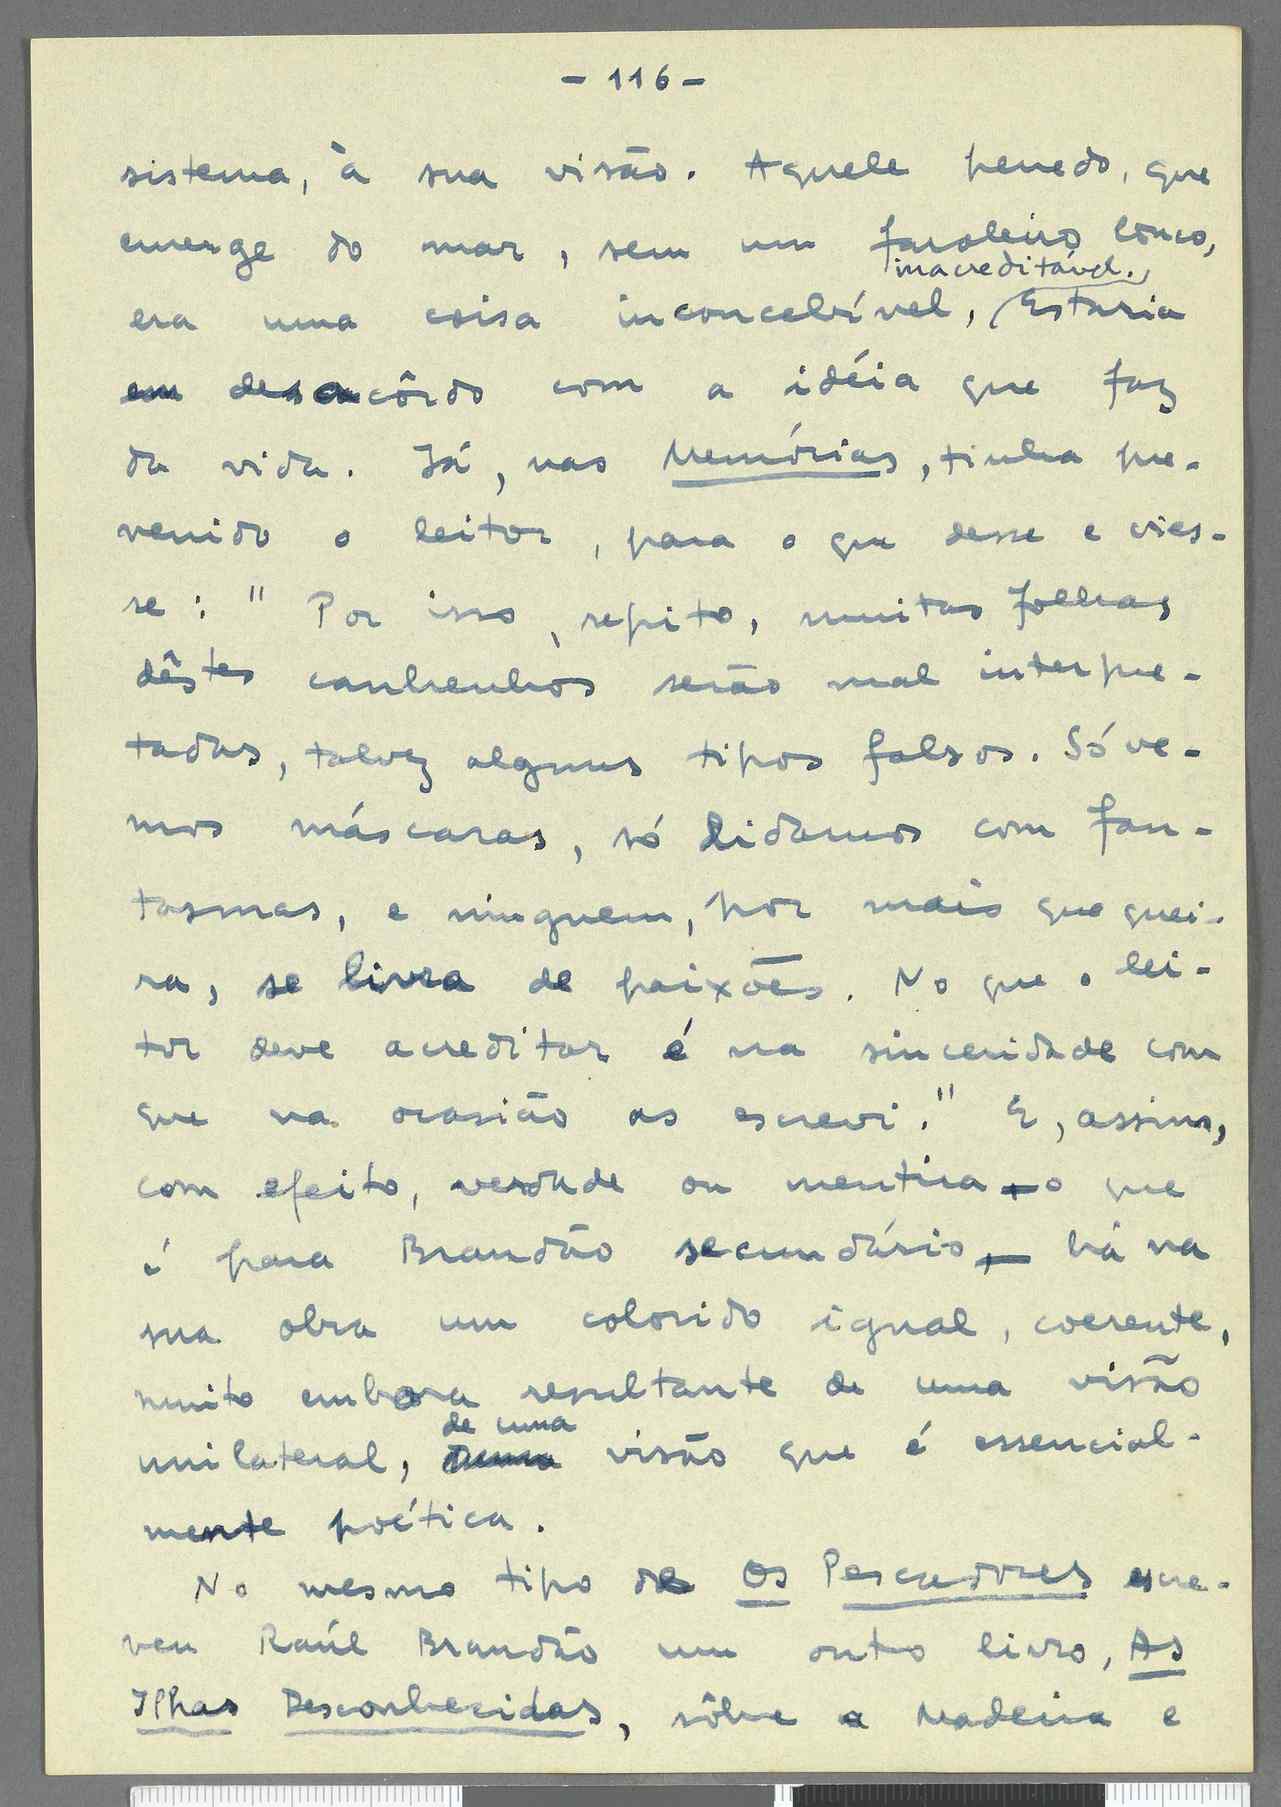 - 116 -
sistema, à sua visão. Aquele penedo, que
emerge do mar, sem um faroleiro louco,
inacreditável.
era uma coisa inconcebível, Estaria
em desacôrdo com a idéia que faz
da vida. Já, nas Memórias, tinha pre-
venido o leitor, para o que desse e vies-
se: " Por isso, repito, muitas folhas
dêstes canhenhos serão mal interpre-
tadas, talvez alguns tipos falsos. Só ve-
mos máscaras, só lidamos com fan-
tasmas, e ninguem, por mais que quei-
ra, se livra de paixões. No que o lei-
tor deve acreditar é na sinceridade com
que na ocasião as escrevi." E, assim,
com efeito, verdade ou mentira - o que
é para Brandão secundário, - há na
sua obra um colorido igual, coerente,
muito embora resultante de uma visão
de uma
unilateral, visão que é essencial-
mente poética.
No mesmo tipo de Os Pescadores escre-
veu Raúl Brandão um outro livro, As
Ilhas Desconhecidas, sôbre a Madeira e